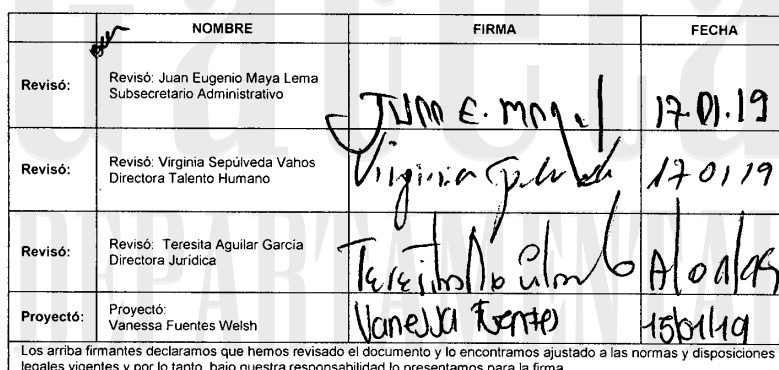 NOMBRE FIRMA FECHA
Revisó: Revisó: Juan Eugenio Maya Lema
Subsecretario Administrativo
Juan E. Maya L 17.01.19
Revisó: Revisó: Virginia Sepúlveda Vahos
Directora Talento Humano
Virginia 17 01 19
Revisó: Revisó: Teresita Aguilar García
Directora Jurídica
Teresita Aguilar
Proyectó: Proyectó:
Vanessa Fuentes Welsh
Vanessa Fuentes 15/01/19
Los arriba firmantes declaramos que hemos revisado el documento y lo encontramos ajustado a las normas y disposiciones
legales vigentes y por lo tanto, bajo nuestra responsabilidad lo presentamos para la firma.
Gaceta
DEPARTAMENTAL